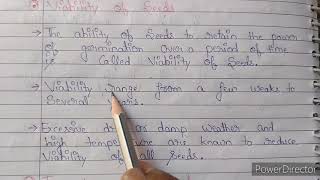 Viability of Seeds
→ The ability of Seeds to retain the power
of germination over a period of time
is Called Viability of Seeds.
→ Viability range from a few weaks to
Several
→ Excessive or damp weather and
high are known to reduce
Viability all Seeds.
PowerDirector